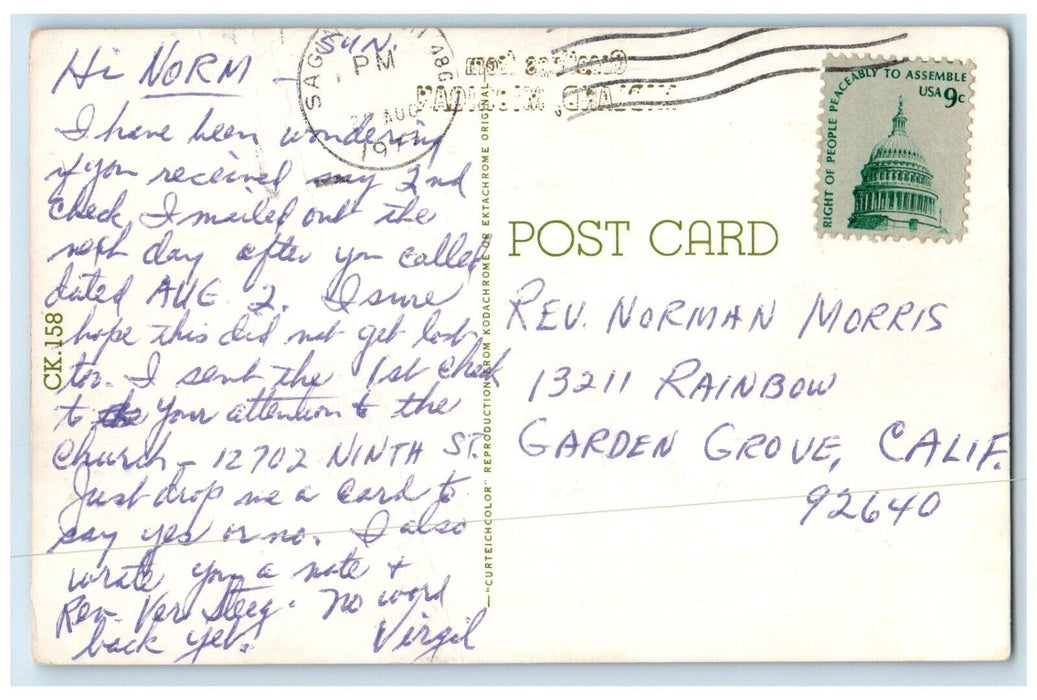 SUN.
Hi NORM -
I have been wondering
if you received my 2nd
check, I mailed out the
next day after you called
dated AUG 2. I sure
hope this did not get lost
too. I sent the 1st check
to your attention to the
Church - 12702 NINTH ST.
Just drop me a card to
say yes or no. I also
wrote you a note +
Rev. Ver Steeg. No word
back yet. Virgil
CK.158
SAG
PM
AUG
486
Greetings from
MIDLAND, MICHIGAN
—"CURTEICHCOLOR" REPRODUCTION FROM KODACHROME OR EKTACHROME ORIGINAL
POST CARD
RIGHT OF PEOPLE PEACEABLY TO ASSEMBLE
USA 9c
REV. NORMAN MORRIS
13211 RAINBOW
GARDEN GROVE, CALIF.
92640